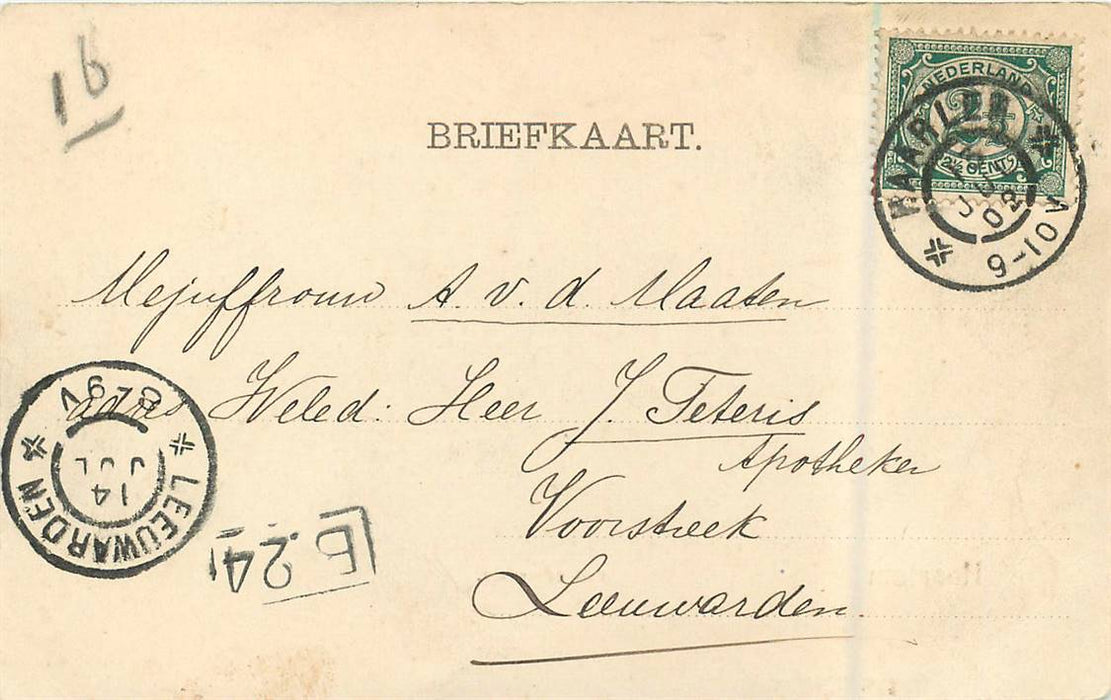 16
BRIEFKAART.
NEDERLAND
2½ CENT
HAARLEM
JUL
02
9-10V
Mejuffrouw A. v. d. Maaten
adres Weled: Heer J. Teteris
Apotheker
Voorstreek
Leeuwarden.
LEEUWARDEN
14
JUL
8-9V
B. 24